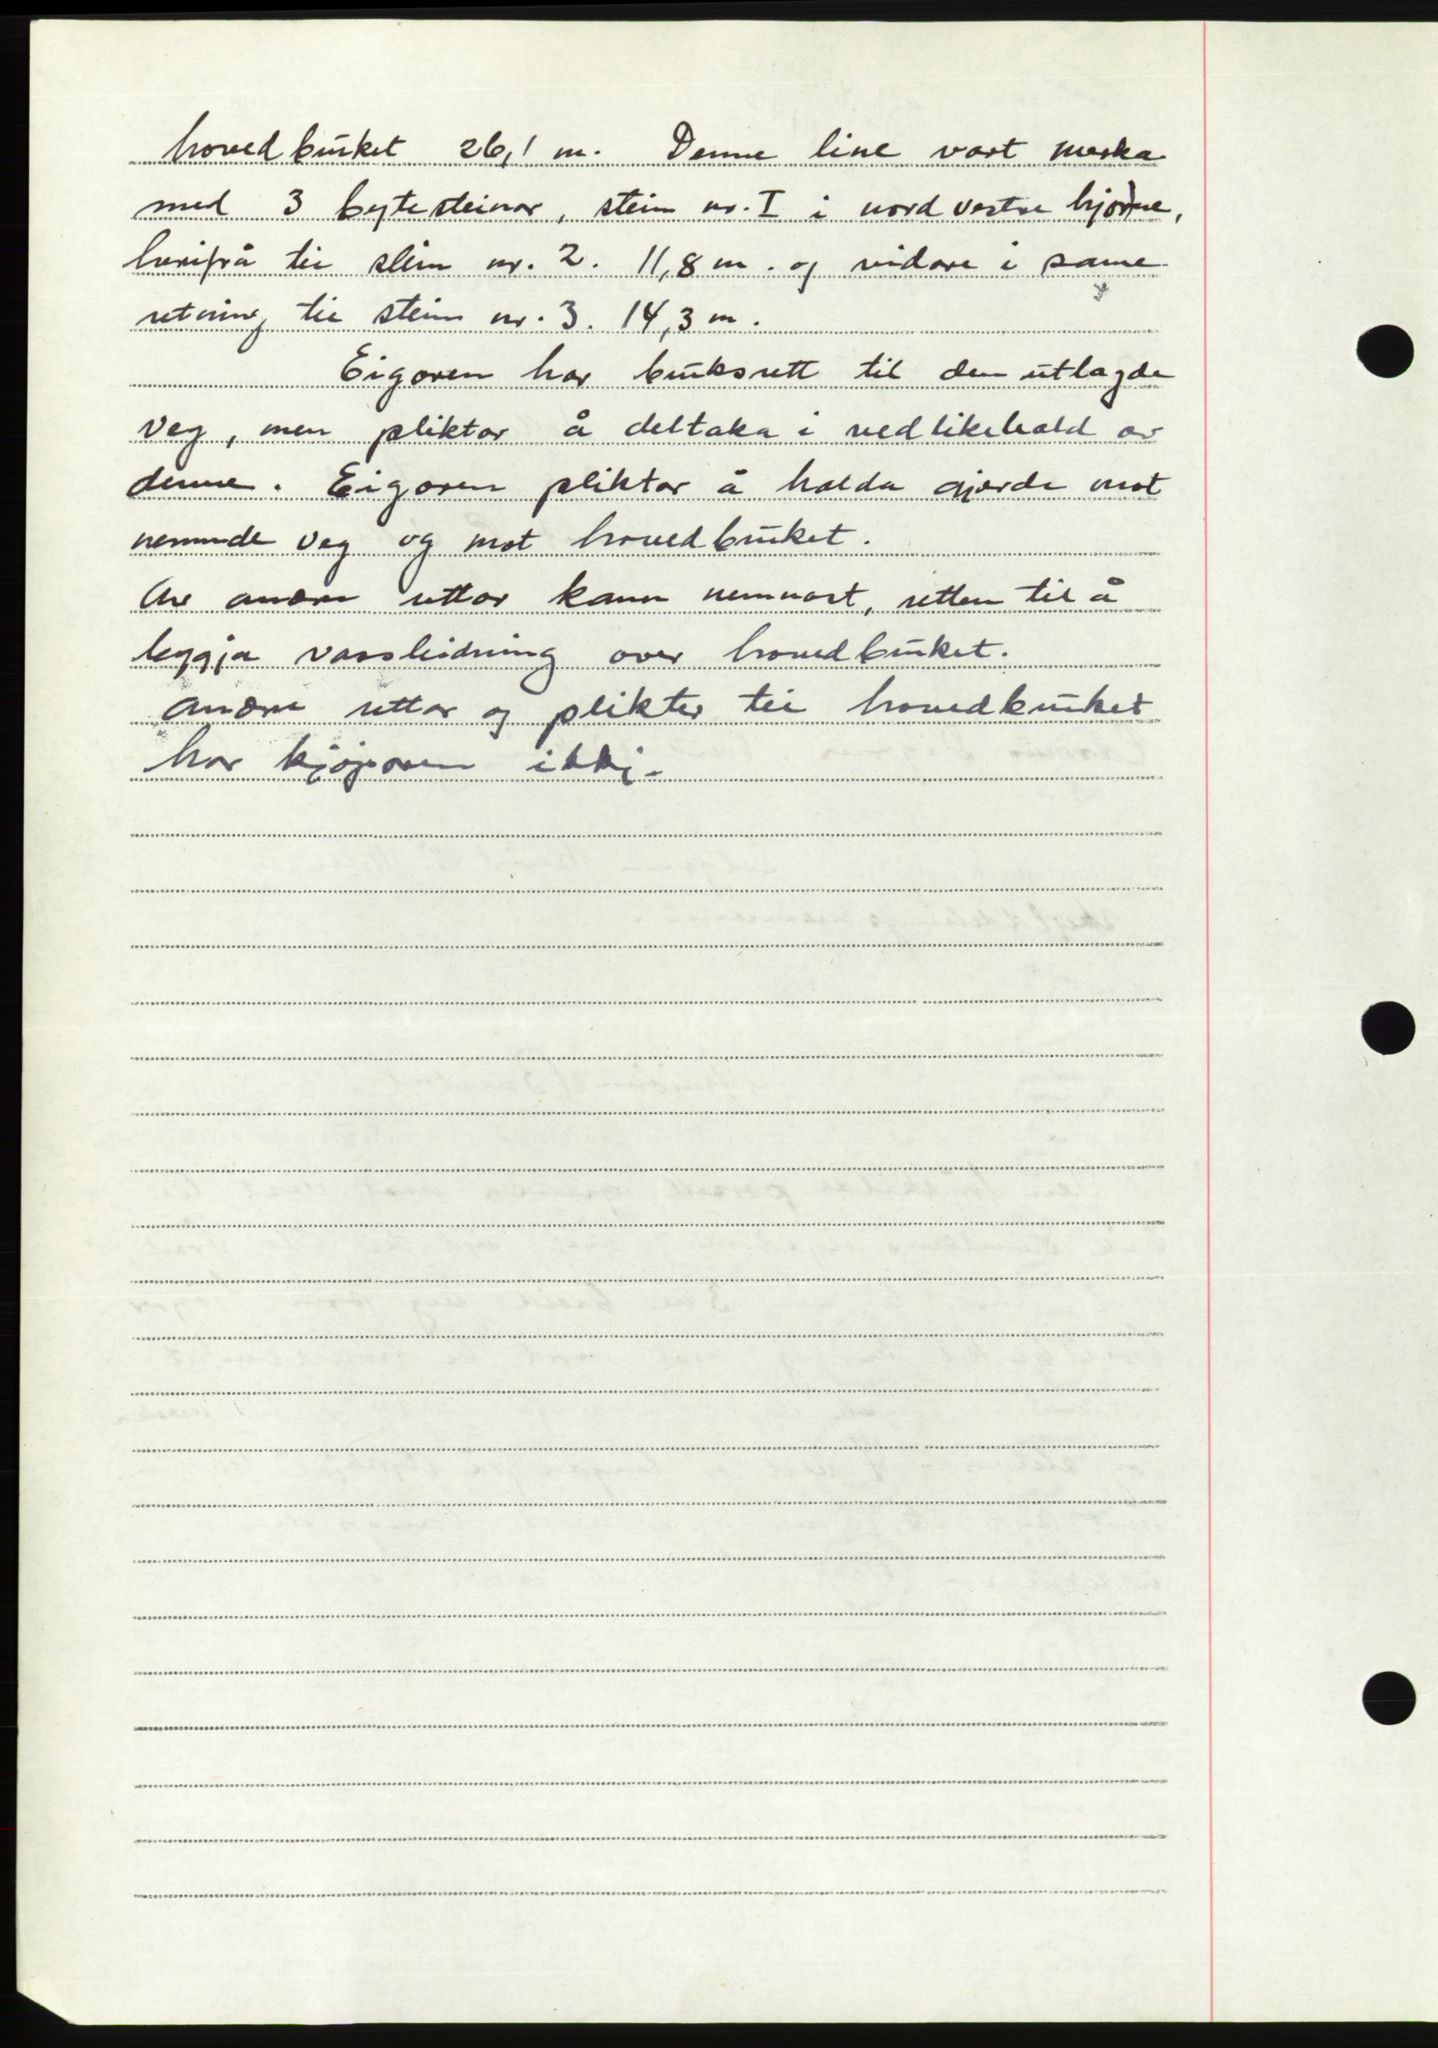 hovedbruket 26,1 m. Denne line vart merka
med 3 bytesteinar, stein nr. I i nordvestre hjørne,
herifrå til stein nr. 2. 11,8 m. og vidare i same
retning til stein nr. 3. 14,3 m.
Eigaren har bruksrett til den utlagde
veg, men pliktar å deltaka i vedlikehald av
denne. Eigaren pliktar å halda gjerde mot
nemnde veg og mot hovedbruket.
Av andre rettar kann nemnast, retten til å
leggja vassleidning over hovedbruket.
Andre rettar og plikter til hovedbruket
har kjøparen ikkj.